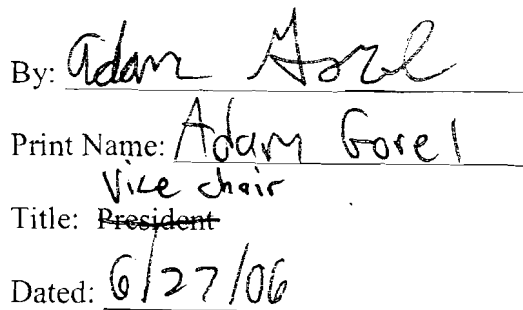 By: Adam Gorel
Print Name: Adam Gorel
Vice chair
Title: President
Dated: 6/27/06